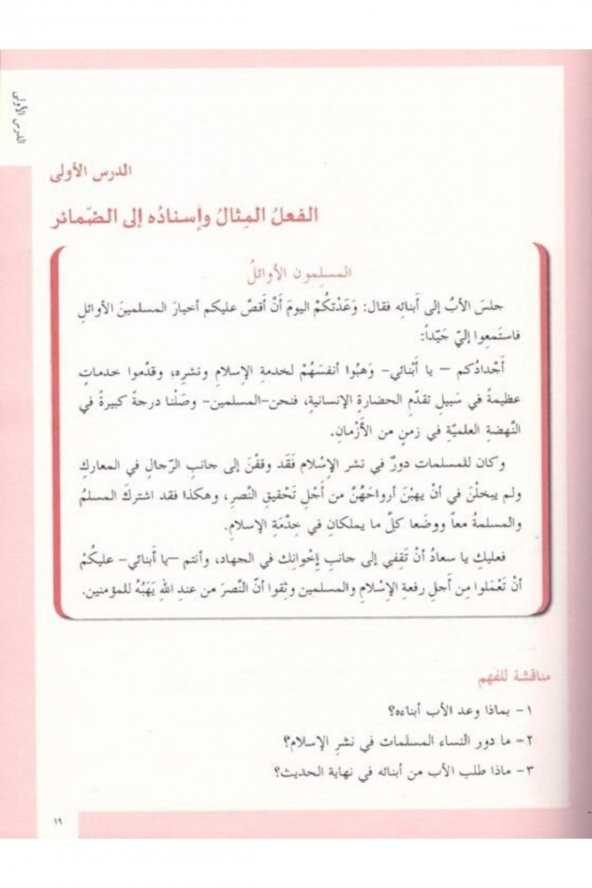 الدرس الأولى
الدرس الأولى
الفعلُ المِثالُ وإسنادُه إلى الضّمائر
المسلِمون الأوائلُ
جلسَ الأبُ إلى أبنائِه فقال: وَعَدْتُكُمْ اليومَ أنْ أقصّ عليكم أخبارَ المسلمينَ الأوائلِ
فاستَمعِوا إليّ جَيّداً:
أجْدادُكم – يا أبْنائي- وهَبُوا أنفسَهُمْ لخدمةِ الإسلامِ ونشرِه، وقدّموا خدماتٍ
عظيمةً في سَبيلِ تقدّمِ الحضارَةِ الإنسانيةِ، فنحن-المسلمين- وصَلْنا درجةً كبيرةً في
النّهضةِ العلميّةِ في زمنٍ من الأزْمانِ.
وكان للمسلمات دورٌ في نشرِ الإسْلام فَقَد وقفْنَ إلى جانبِ الرّجالِ في المعاركِ
ولم يبخلْنَ في أنْ يهبْنَ أرواحَهُنّ من أجْلِ تَحْقيقِ النّصرِ، وهكذا فقد اشتركَ المسلمُ
والمسلمةُ معاً ووضَعا كلَّ ما يملكانِ في خِدْمَةِ الإسلامِ.
فعليكِ يا سعادُ أنْ تَقفي إلى جانبِ إخْوانِك في الجهاد، وأنتم –يا أبنائي- عليكُمْ
أنْ تَعْمَلوا مِن أجلِ رفعةِ الإسْلامِ والمسلمين وثِقوا أنّ النّصرَ من عندِ اللهِ يَهَبُهُ للمؤمنين.
مناقشة للفهم
١- بماذا وعد الأب أبناءه؟
٢- ما دور النساء المسلمات في نشرِ الإسلام؟
٣- ماذا طلب الأب من أبنائه في نهاية الحديث؟
١٩